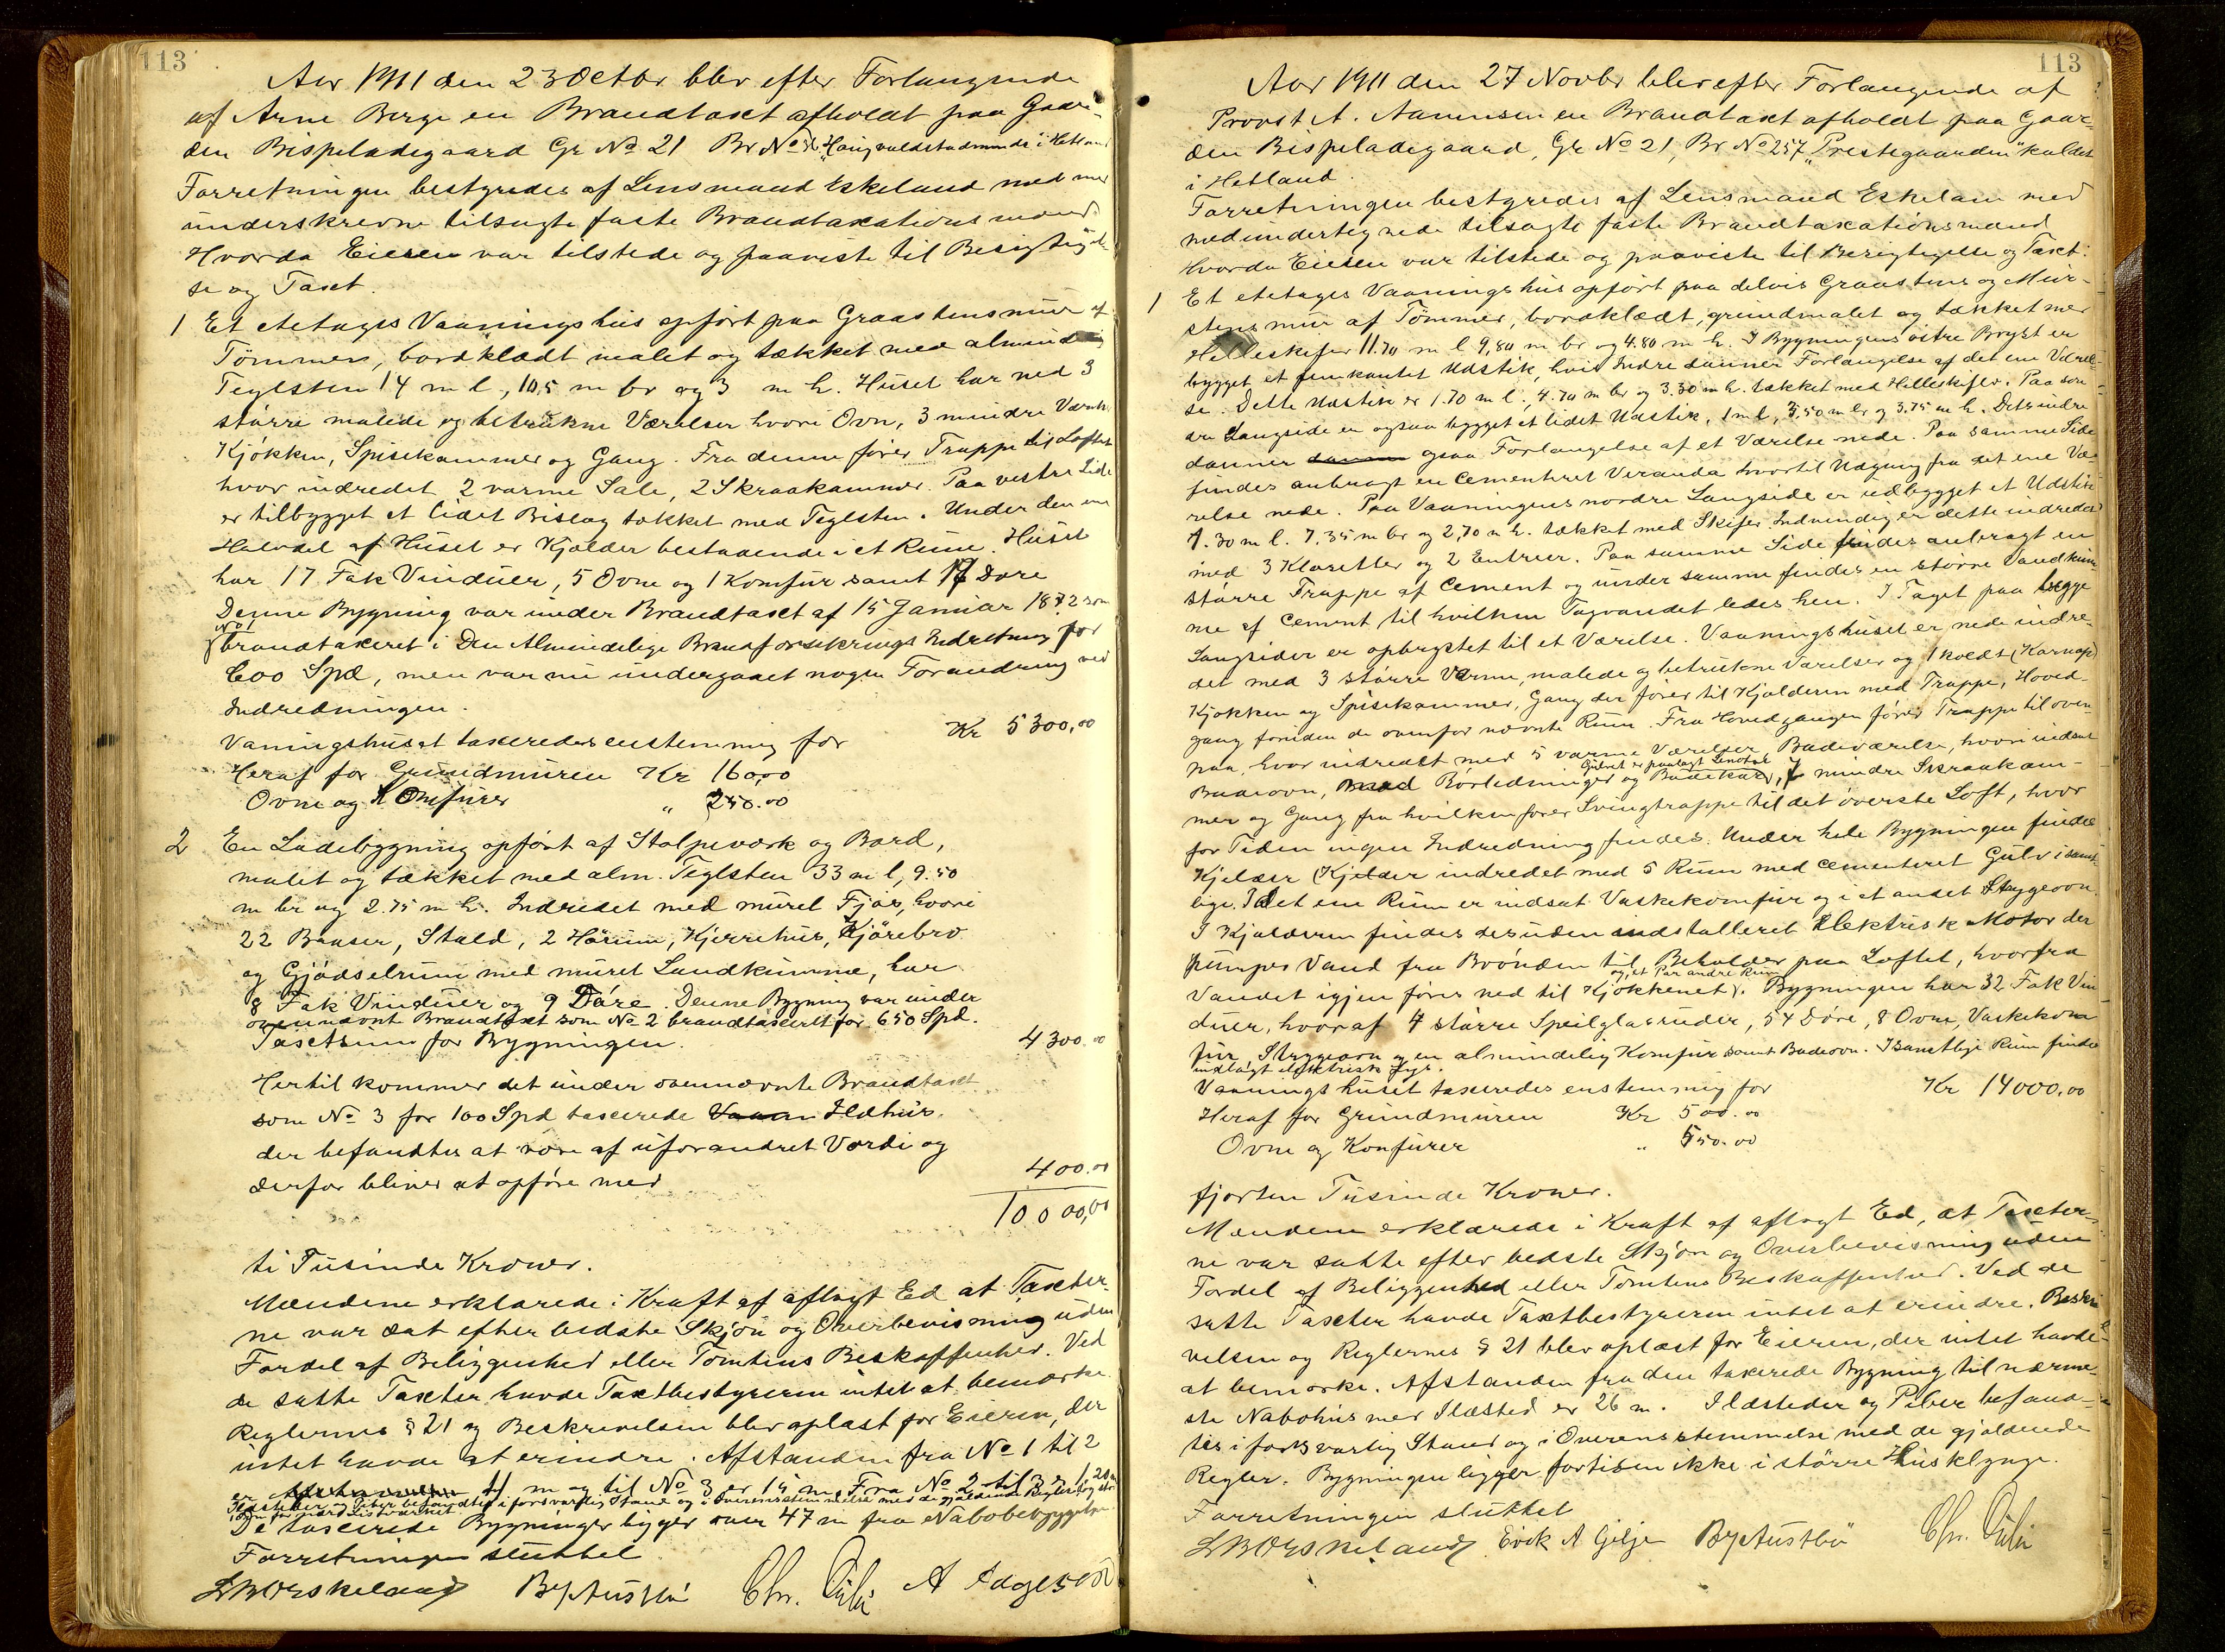 113
Aar 1911 den 23 Octbr blev efter Forlangende
af Arne Berge en Brandtaxt afholdt paa Gaar-
den Bispeladegaard Gr No 21 Br No "Haugvaldstadminde" i Hetland
Forretningen bestyredes af Lensmand Eskeland med
underskrevne tilsagte faste Brandtaxationsmænd.
Hvorda Eieren var tilstede og paaviste til Besigtigel-
se og Taxt.
1 Et etetages Vaaningshus opført paa Graastensmur af
Tømmer, bordklædt malet og tækket med almindelig
Teglsten 14 m l, 10,5 m br og 3 m h. Huset har ned 3
større malede og betrukne Værelser hvori Ovn, 3 mindre
Kjøkken, Spisekammer og Gang. Fra denne fører Trappe til Loftet
hvor indredet 2 varme Sale, 2 Skraakammer. Paa vestre Side
er tilbygget et lidet Bislag tækket med Teglsten. Under den ene
Halvdel af Huset er Kjælder bestaaende i et Rum. Huset
har 17 Fak Vinduer, 5 Ovne og 1 Komfur samt 17 Døre
Denne Bygning var under Brandtaxt af 15 Januar 1872 som
No 1
brandtaxeret i Den Almindelige Brandforsikrings Indretning for
600 Spd, men var nu undergaaet nogen Forandring ved
Indredningen.
Vaningshuset taxeredes enstemmig for Kr 5300,00
Heraf for Grundmuren Kr 160,00
Ovne og Komfurer " 250.00
2 En Ladebygning opført af Stolpeværk og Bord,
malet og tækket med alm. Teglsten 33 m l, 9.50
m br og 2.75 m h. Indredet med muret Fjøs, hvori
22 Baaser, Stald, 2 Hørum, Kjerrehus, Kjørebro
og Gjødselrum med muret Landkumme, har
8 Fak Vinduer og 9 Døre. Denne Bygning var under
ovennævnt Brandtaxt som No 2 brandtaxeret for 650 Spd.
Taxtsum for Bygningen. 4300.00
Hertil kommer det under ovennævnte Brandtaxt
som No 3 for 100 Spd taxerede Ildhus.
der befandtes at være af uforandret Værdi og
derfor bliver at opføre med 400.00
10000,00
ti Tusinde Kroner.
Mændene erklærede i Kraft af aflagt Ed at Taxter-
ne var sat efter bedste Skjøn og Overbevisning uden
Fordel af Beliggenhed eller Tomtens Beskaffenhed. Ved
de satte Taxter havde Taxtbestyreren intet at bemærke.
Reglernes § 21 og Beskrivelsen blev oplæst for Eieren, der
intet havde at erindre. Afstanden fra No 1 til 2
er 11 m og til No 3 er 15 m. Fra No 2 til 3 er 1.20 m
Ildsteder og Piber befandtes i forsvarlig Stand og i Overensstemmelse med de gjældende Regler
De taxerede Bygninger ligger over 47 m fra Nabobebyggelse
Forretningen sluttet
B Austbø Chr.
113
Aar 1911 den 27 Novbr blev efter Forlangende af
Provst A. Aanensen en Brandtaxt afholdt paa Gaar-
den Bispeladegaard, Gr No 21, Br No 257 "Prestegaarden" kaldet
i Hetland.
Forretningen bestyredes af Lensmand Eskeland med
medundertegnede tilsagte faste Brandtaxationsmænd
Hvorda Eieren var tilstede og paaviste til Besigtigelse og Taxt.
1 Et etetages Vaaningshus opført paa delvis Graastens og Mur-
stens mur af Tømmer, bordklædt, grundmalet og tækket med
Helleskifer 11.70 m l 9,80 m br og 4.80 m h. I Bygningens østre Bryst er
bygget et femkantet Udstik, hvis Indre danner Forlængelse af det ene Værel-
se. Dette Udstik er 1.70 m l, 4.70 m br og 3.30 m h. tækket med Helleskifer. Paa søn-
dre Langside er ogsaa bygget et lidet Udstik, 1 m l, 3.50 m br og 3.75 m h. Dets indre
danner ogsaa Forlængelse af et Værelse nede. Paa samme Side
findes anbragt en Cementeret Veranda hvortil Udgang fra det ene Væ-
relse nede. Paa Vaaningens nordre Langside er udbygget et Udstik
1.30 m l. 7.35 m br og 2,70 m h. tækket med Skifer. Indvendig er dette indredet
med 3 Klosetter og 2 Entreer. Paa samme Side findes anbragt en
større Trappe af Cement og under samme findes en større Vandkum-
me af Cement til hvilken Tagvandet ledes hen. I Taget paa begge
Langsider er opbrystet til et Værelse. Vaaningshuset er nede indre-
det med 3 større Varme, malede og betrukne Værelser og 1 koldt (Karnap)
Kjøkken og Spisekammer, Gang der fører til Kjælderen med Trappe, Hoved-
gang foruden de ovenfor nævnte Rum. Fra Hovedgangen fører Trappe til oven-
paa, hvor indredt med 5 varme Værelser, Badeværelse, hvori indsat
Gulvet er paalagt Linoleum
Badeovn, med Rørledninger og Badekar, 7 mindre Skraakam-
mer og Gang fra hvilken fører Svingtrappe til det øverste Loft, hvor
for Tiden ingen Indredning findes. Under hele Bygningen findes
Kjelder (Kjelder indredet med 5 Rum med cementeret Gulv i samt-
lige. I det ene Rum er indsat Vaskekomfur og i et andet Strygeovn.
I Kjælderen findes desuden indstalleret Elektrisk Motor der
pumper Vand fra Brønden til Beholder paa Loftet, hvorfra
og et Par andre Rum
Vandet igjen føres ned til Kjøkkenet). Bygningen har 32 Fak Vin-
duer, hvoraf 4 større Speilglasruder, 54 Døre, 8 Ovne, Vaskekom-
fur, Strygeovn og en almindelig Komfur samt Badeovn. I samtlige Rum findes
indlagt elektrisk lys.
Vaaningshuset taxeredes enstemmig for Kr 14000,00
Heraf for Grundmuren Kr 500.00
Ovne og Komfurer " 550.00
fjorten Tusinde Kroner.
Mændene erklærede i Kraft af aflagt Ed, at Taxter-
ne var satte efter bedste Skjøn og Overbevisning uden
Fordel af Beliggenhed eller Tomtens Beskaffenhed. Ved de
satte Taxter havde Taxtbestyreren intet at erindre. Beskri-
velsen og Reglernes § 21 blev oplæst for Eieren, der intet havde
at bemærke. Afstanden fra den taxerede Bygning til nærme-
ste Nabohus med Ildsted er 26 m. Ildsteder og Piber befand-
tes i forsvarlig Stand og i Overensstemmelse med de gjældende
Regler. Bygningen ligger fortiden ikke i større Husklynge.
Forretningen sluttet
Eskeland Eick A Gilje B Austbø Chr.